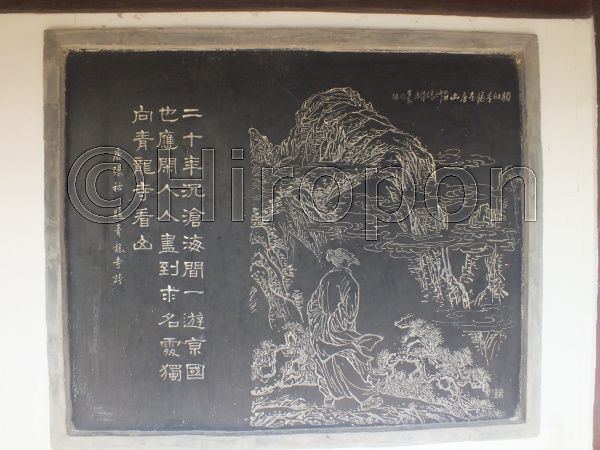 獨向青龍寺看山
二十年沉滄海間一游京國
也應閑人人盡到求名處獨
向青龍寺看山
唐張祜題青龍寺詩
©Hiropon